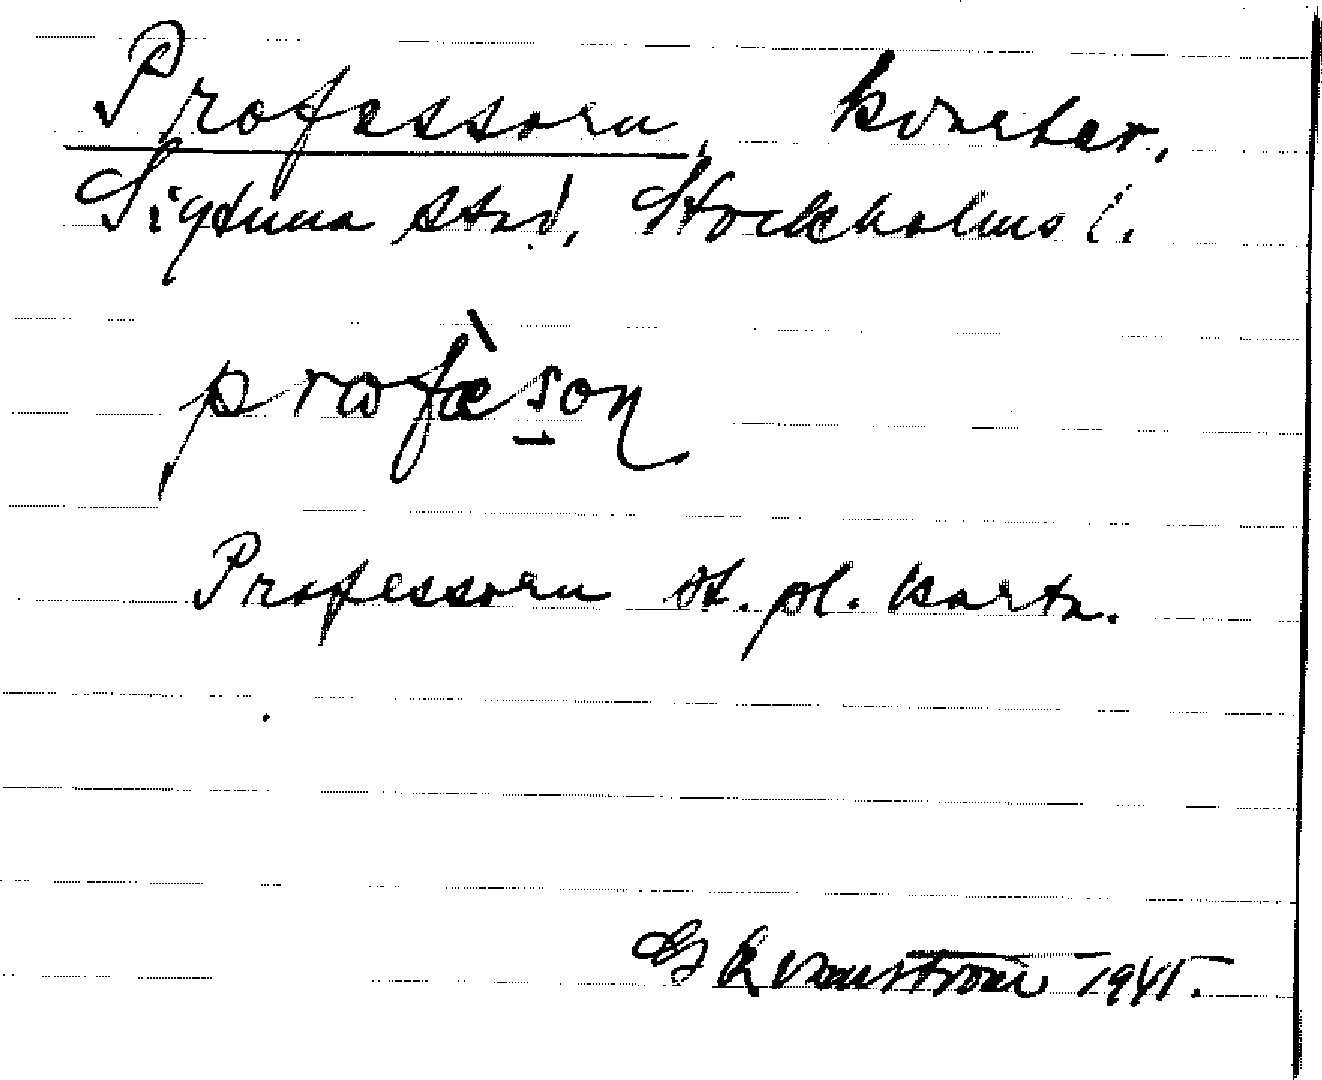 Professorn, kvarter,
Sigtuna stad, Stockholms l.
profæ̀son
Professorn st. pl. karta.
G Kvarnström 1941.